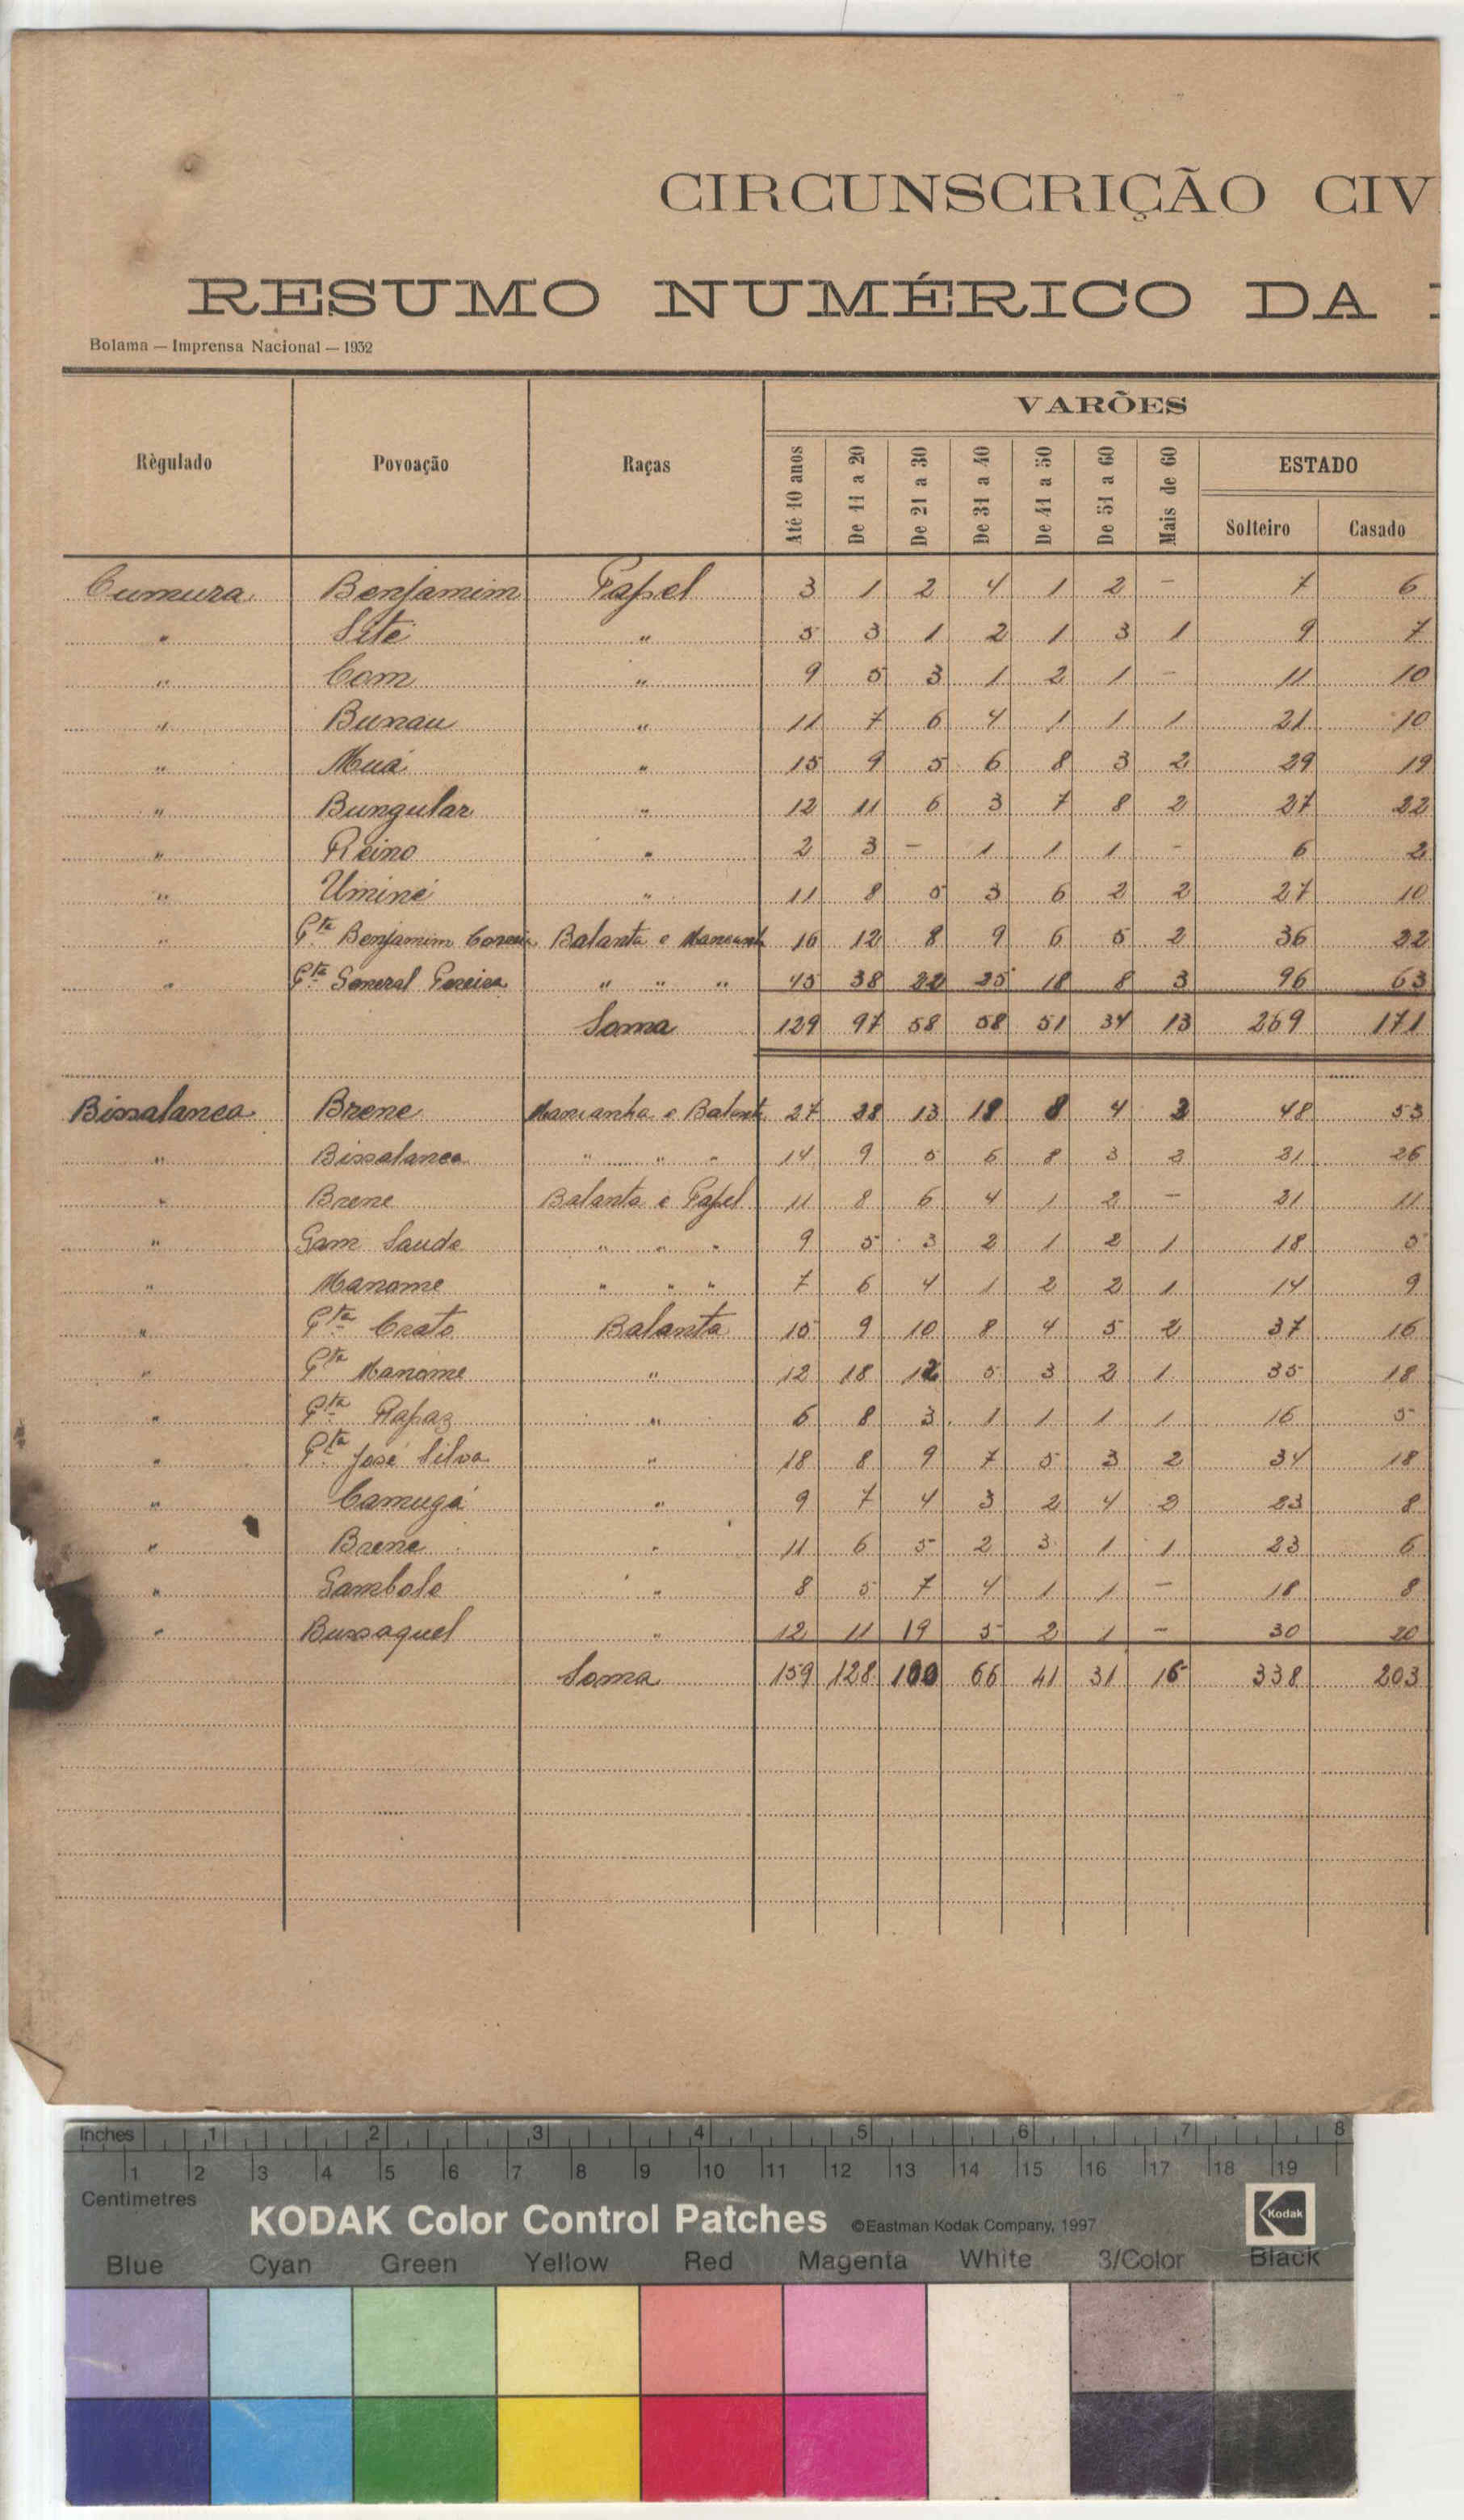 CIRCUNSCRIÇÃO CIV
RESUMO NUMÉRICO DA
Bolama — Imprensa Nacional — 1932
VARÕES
Règulado Povoação Raças Até 10 anos De 11 a 20 De 21 a 30 De 31 a 40 De 41 a 50 De 51 a 60 Mais de 60 ESTADO
Solteiro Casado
Cumura Benjamim Papel 3 1 2 4 1 2 — 7 6
" Sité " 5 3 1 2 1 3 1 9 7
" Com " 9 5 3 1 2 1 — 11 10
" Bunau " 11 7 6 4 1 1 1 21 10
" Muá " 15 9 5 6 8 3 2 29 19
" Bungular " 12 11 6 3 7 8 2 27 22
" Reino " 2 3 — 1 1 1 — 6 2
" Uminé " 11 8 5 3 6 2 2 27 10
" Pta Benjamim Correia Balanta e Mancanh 16 12 8 9 6 5 2 36 22
" Pta General Pereira " " " 45 38 22 25 18 8 3 96 63
Soma 129 97 58 58 51 34 13 269 171
Bissalanca Brene Mancanha e Balant 27 28 13 18 8 4 3 48 53
" Bissalanca " " " 14 9 5 6 8 3 2 21 26
" Brene Balanta e Papel 11 8 6 4 1 2 — 21 11
" Gam Saude " " " 9 5 3 2 1 2 1 18 5
" Maname " " " 7 6 4 1 2 2 1 14 9
" Pta Crato Balanta 15 9 10 8 4 5 2 37 16
" Pta Maname " 12 18 12 5 3 2 1 35 18
" Pta Rapaz " 6 8 3 1 1 1 1 16 5
" Pta José Silva " 18 8 9 7 5 3 2 34 18
" Camugá " 9 7 4 3 2 4 2 23 8
" Brene " 11 6 5 2 3 1 1 23 6
" Gambole " 8 5 7 4 1 1 — 18 8
" Bussaquel " 12 11 19 5 2 1 — 30 20
Soma 159 128 100 66 41 31 16 338 203
Inches 1 2 3 4 5 6 7 8
1 2 3 4 5 6 7 8 9 10 11 12 13 14 15 16 17 18 19
Centimetres
KODAK Color Control Patches ©Eastman Kodak Company, 1997 Kodak
Blue Cyan Green Yellow Red Magenta White 3/Color Black